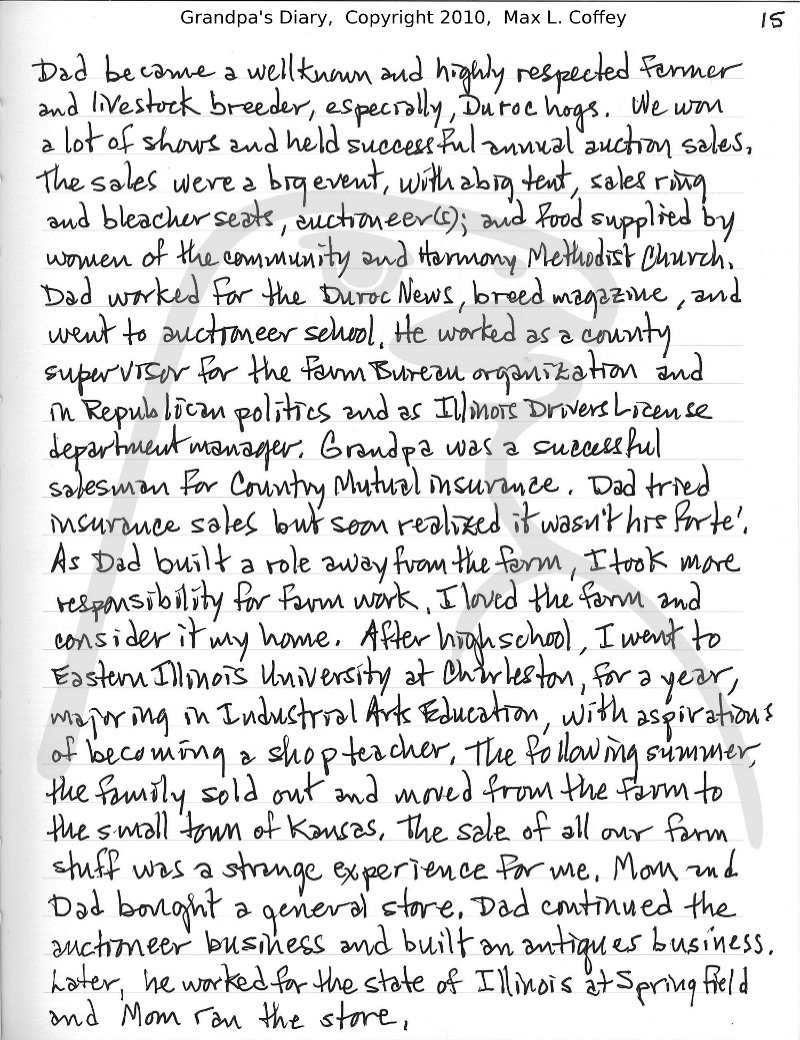 Grandpa's Diary, Copyright 2010, Max L. Coffey 15
Dad became a well known and highly respected farmer
and livestock breeder, especially, Duroc hogs. We won
a lot of shows and held successful annual auction sales.
The sales were a big event, with a big tent, sales ring
and bleacher seats, auctioneer(s); and food supplied by
women of the community and Harmony Methodist Church.
Dad worked for the Duroc News, breed magazine, and
went to auctioneer school. He worked as a county
supervisor for the Farm Bureau organization and
in Republican politics and as Illinois Drivers License
department manager. Grandpa was a successful
salesman for Country Mutual insurance. Dad tried
insurance sales but soon realized it wasn't his forte'.
As Dad built a role away from the farm, I took more
responsibility for farm work. I loved the farm and
consider it my home. After high school, I went to
Eastern Illinois University at Charleston, for a year,
majoring in Industrial Arts Education, with aspirations
of becoming a shop teacher. The following summer,
the family sold out and moved from the farm to
the small town of Kansas. The sale of all our farm
stuff was a strange experience for me. Mom and
Dad bought a general store. Dad continued the
auctioneer business and built an antiques business.
Later, he worked for the state of Illinois at Springfield
and Mom ran the store.